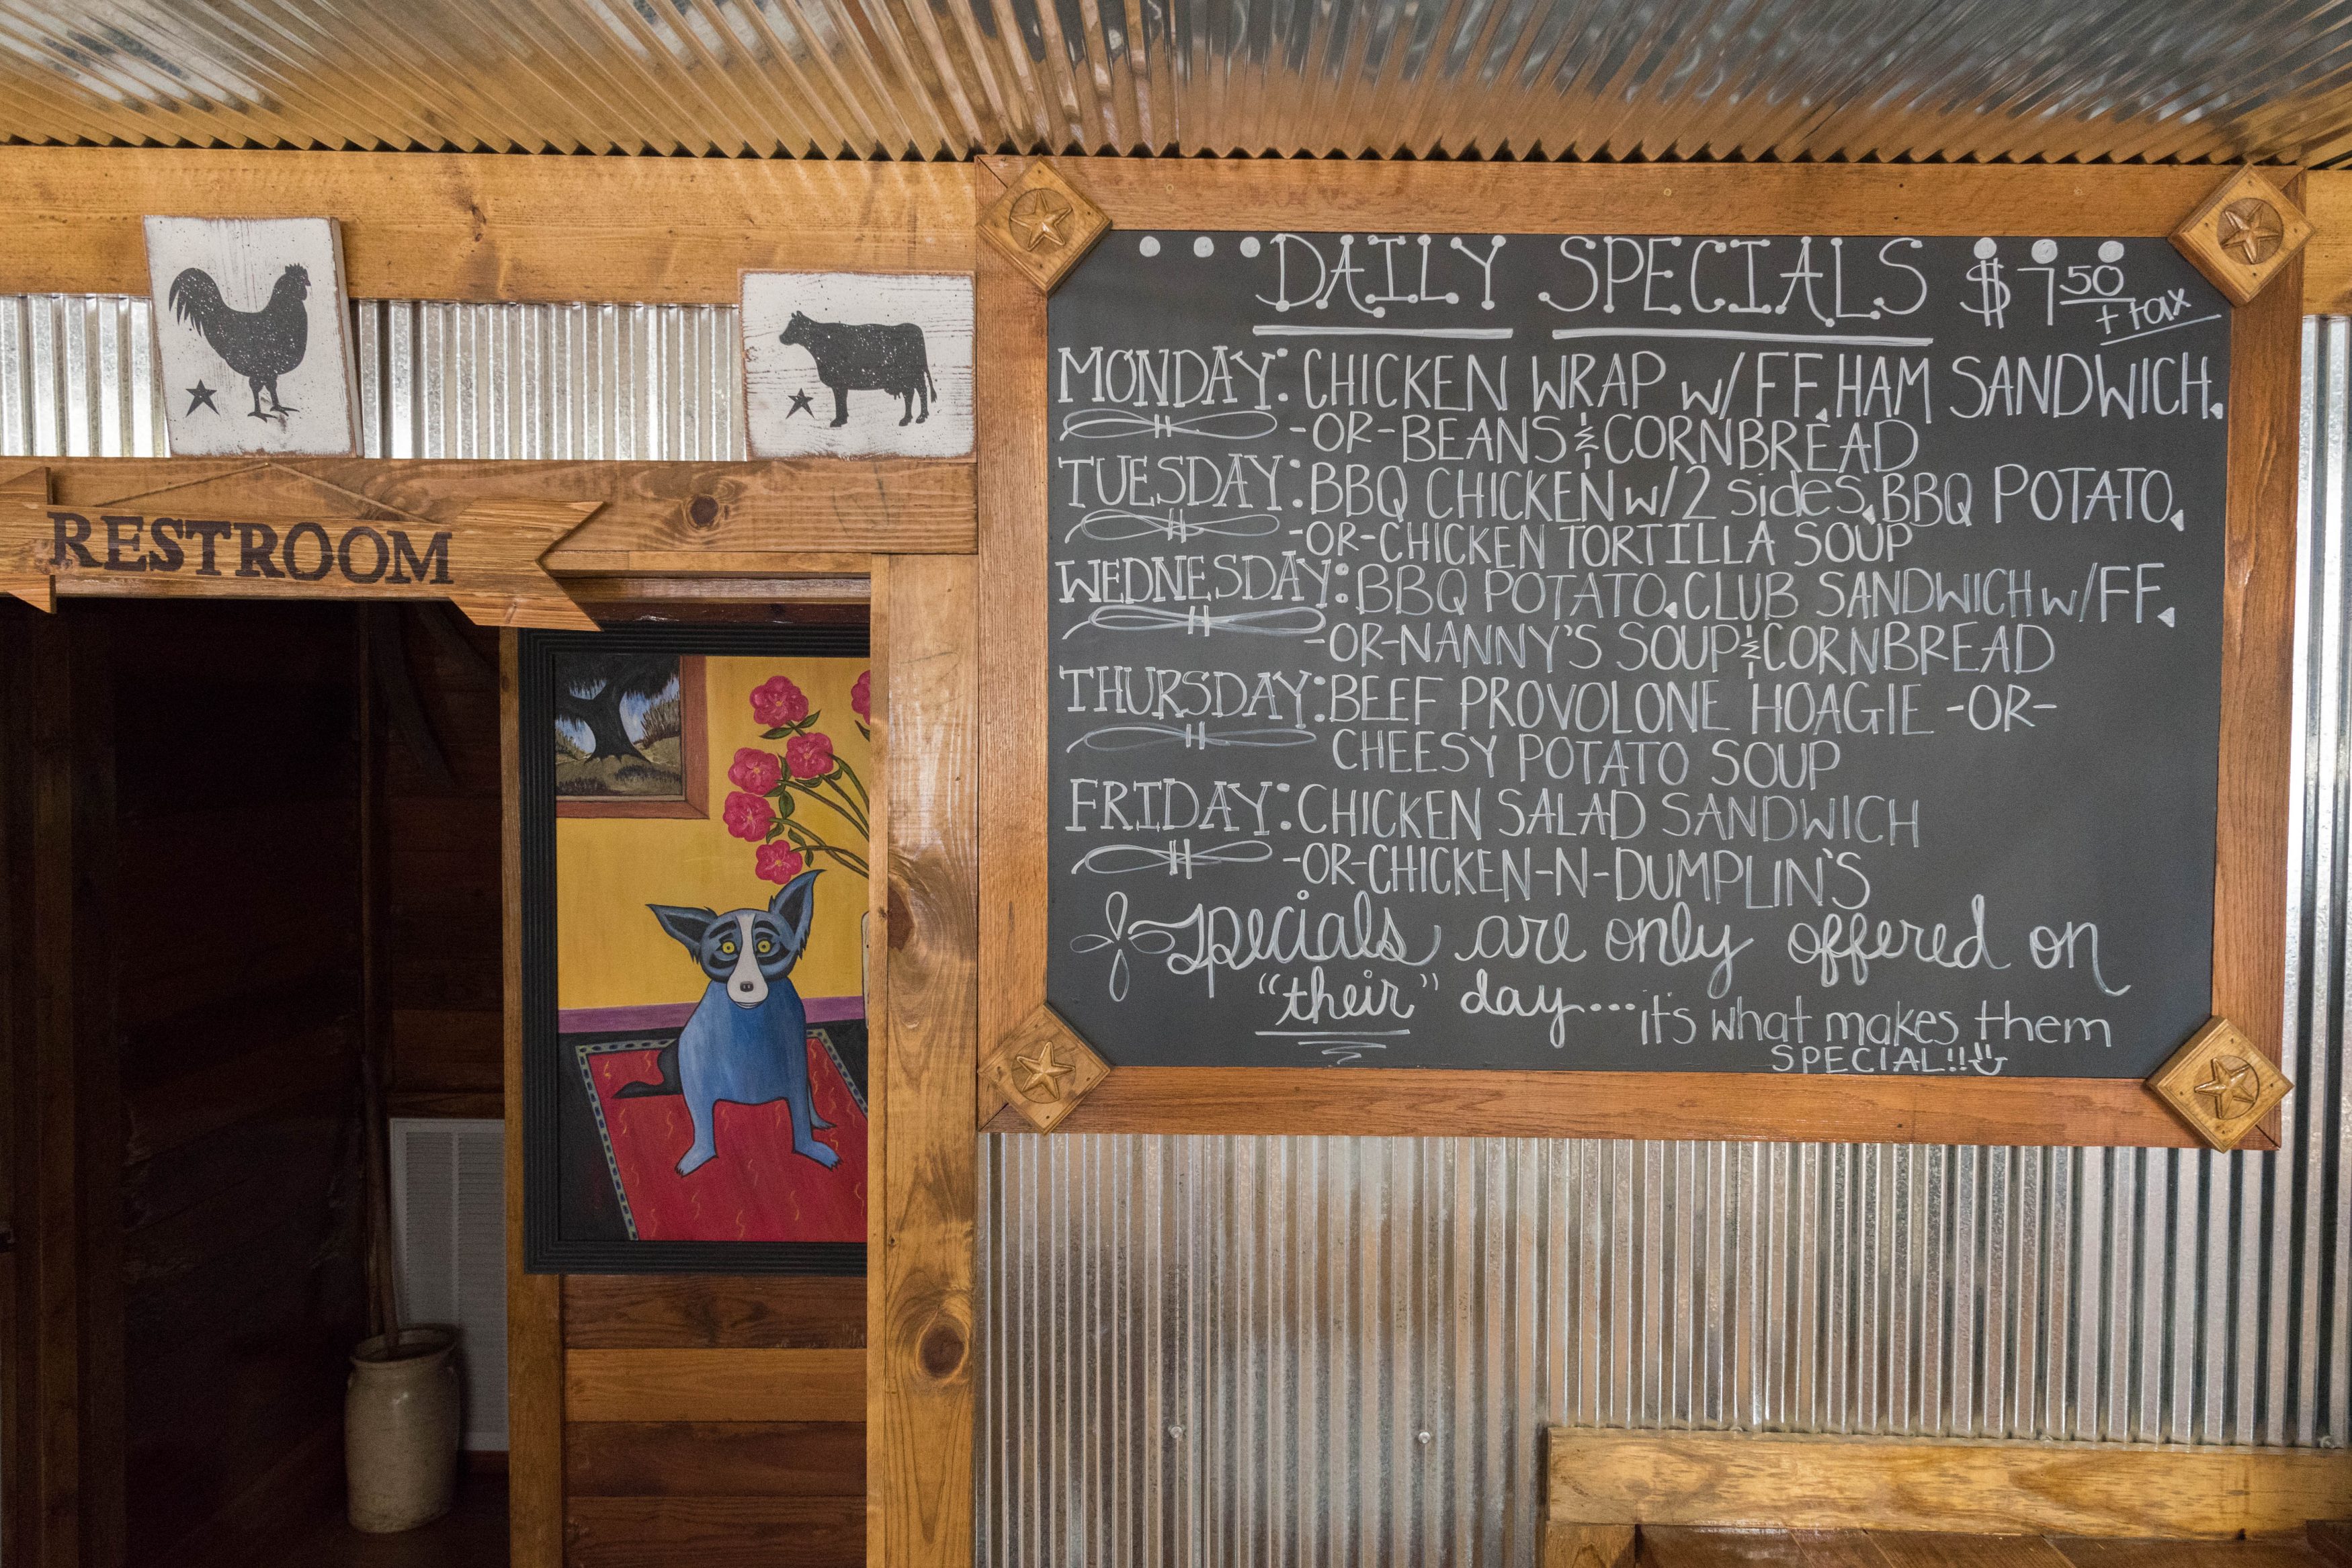 RESTROOM
DAILY SPECIALS $7.50 + tax
MONDAY: CHICKEN WRAP w/FF, HAM SANDWICH,
-OR-BEANS & CORNBREAD
TUESDAY: BBQ CHICKEN w/2 sides, BBQ POTATO,
-OR-CHICKEN TORTILLA SOUP
WEDNESDAY: BBQ POTATO, CLUB SANDWICH w/FF,
-OR-NANNY'S SOUP & CORNBREAD
THURSDAY: BEEF PROVOLONE HOAGIE -OR-
CHEESY POTATO SOUP
FRIDAY: CHICKEN SALAD SANDWICH
-OR-CHICKEN-N-DUMPLIN'S
Specials are only offered on
"their" day... it's what makes them
SPECIAL!!